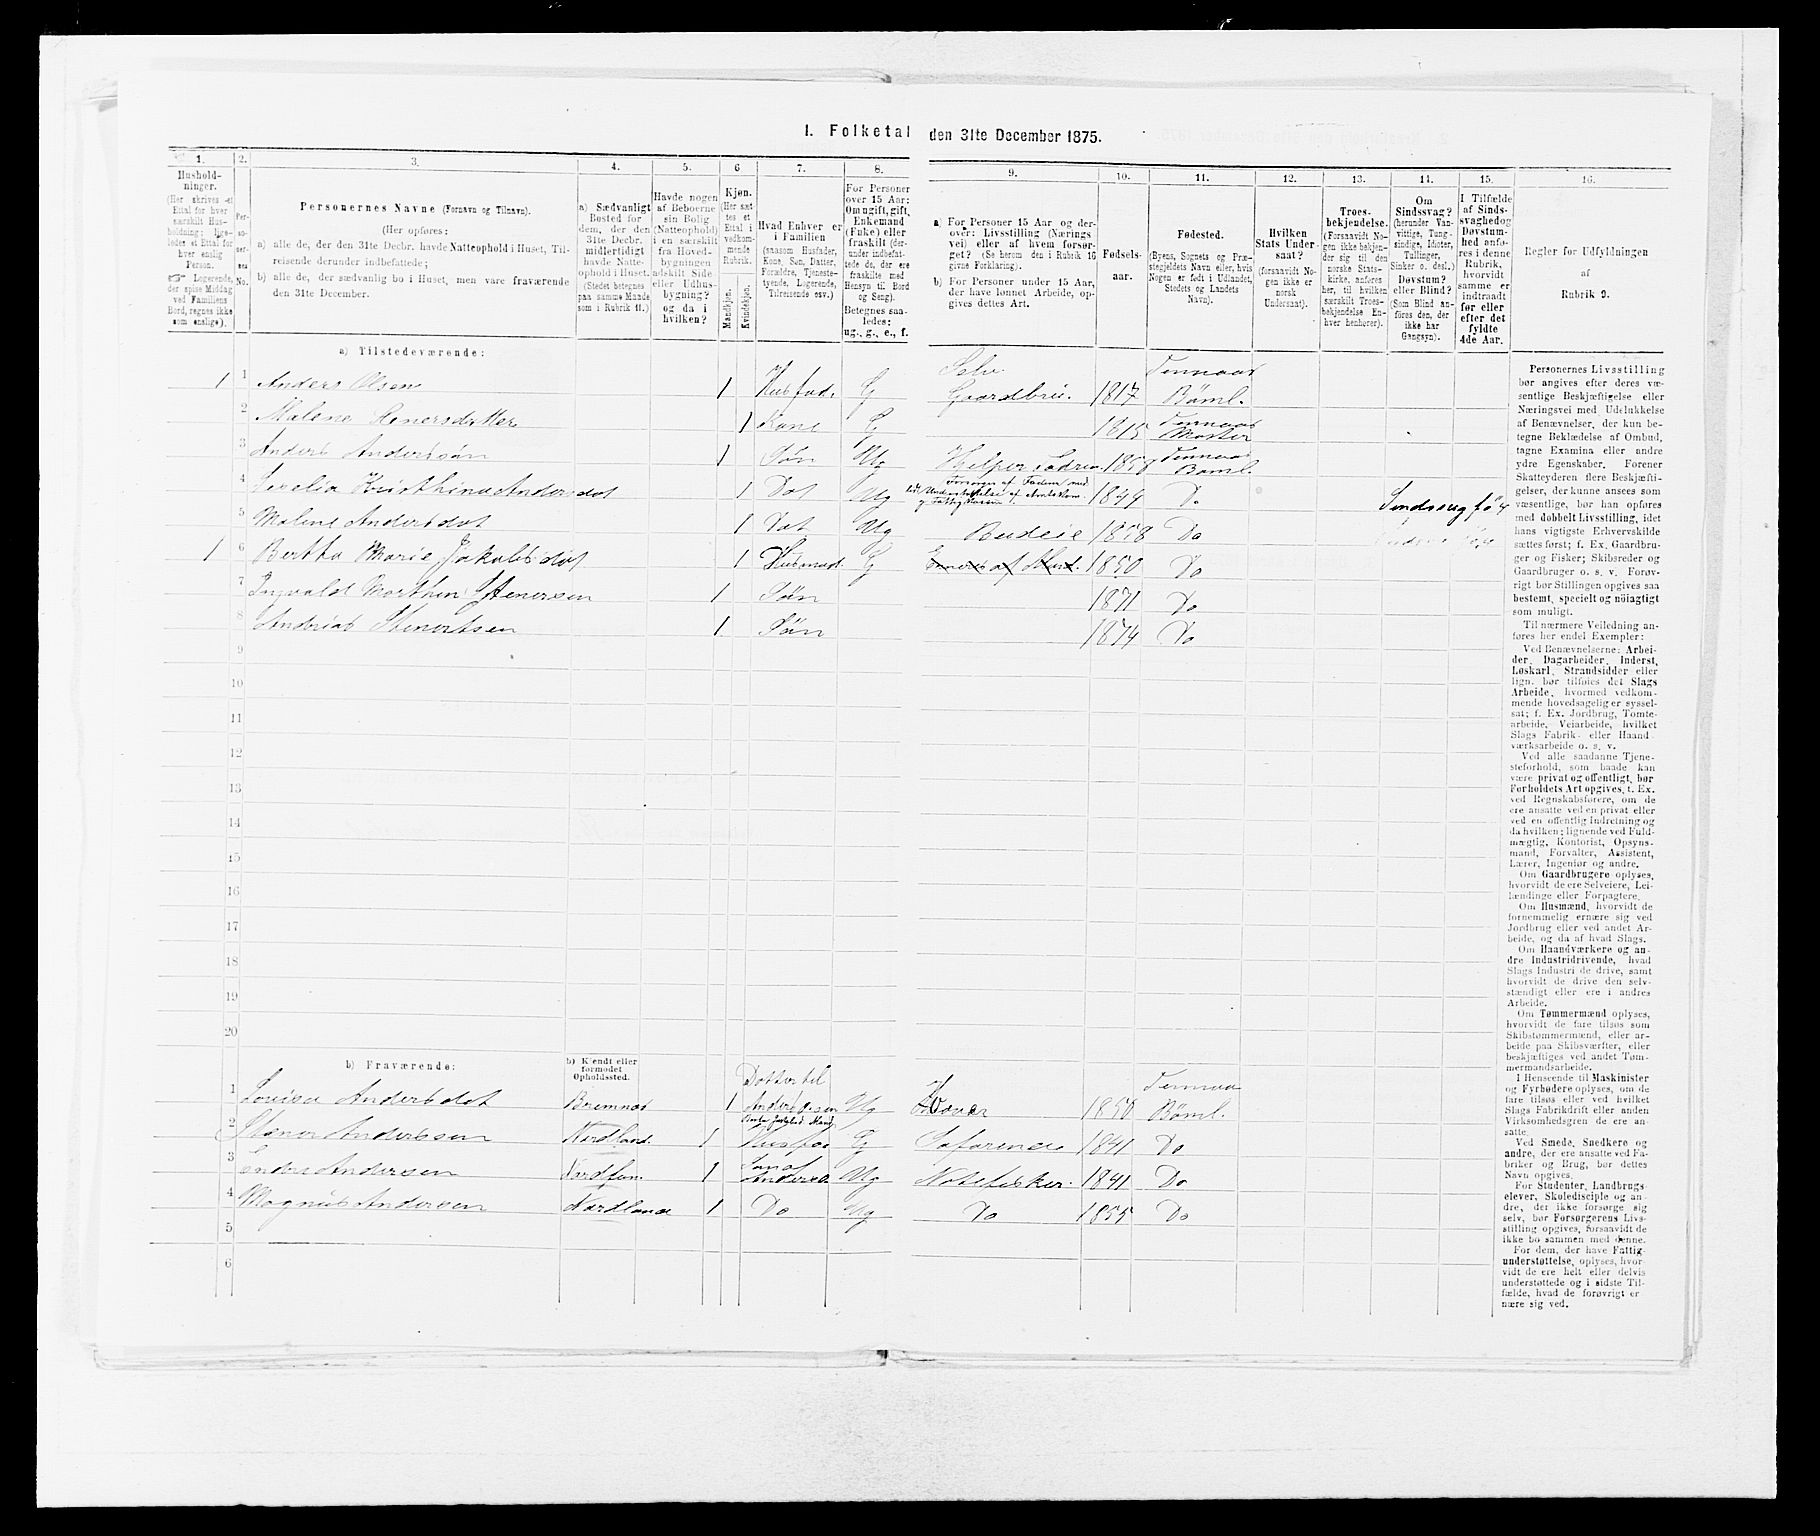 I. Folketal den 31te December 1875.
1. 2. 3. 4. 5. 6 7. 8. 9. 10. 11. 12. 13. 14. 15. 16.
Hushold-
ninger.
(Her skrives et
Ettal for hver
særskilt Hus-
holdning; lige-
ledes et Ettal for
hver enslig
Person.
☞ Logerende,
der spise Middag
ved Familiens
Bord, regnes ikke
som enslige).
Per-
so-
ner-
nes
No.
Personernes Navne (Fornavn og Tilnavn).
(Her opføres:
a) alle de, der den 31te Decbr. havde Natteophold i Huset, Til-
reisende derunder indbefattede;
b) alle de, der sædvanlig bo i Huset, men vare fraværende
den 31te December.
a) Sædvanligt
Bosted for
dem, der den
31te Decbr.
midlertidigt
havde Natte-
ophold i Huset.
(Stedet betegnes
paa samme Maade
som i Rubrik 11.)
Havde nogen
af Beboerne
sin Bolig
(Natteophold)
i en særskilt
fra Hoved-
bygningen
adskilt Side
eller Udhus-
bygning?
og da i
hvilken?
Kjøn.
(Her sæt-
tes et
Ettal i
vedkom-
mende
Rubrik.
Mandkjøn.
Kvindekjøn.
Hvad Enhver er
i Familien
(saasom Husfader,
Kone, Søn, Datter,
Forældre, Tjeneste-
tyende, Logerende,
Tilreisende osv.)
For Personer
over 15 Aar:
Om ugift, gift,
Enkemand
(Enke) eller
fraskilt (der-
under indbefat-
tede de, der ere
fraskilte med
Hensyn til Bord
og Seng).
Betegnes saa-
ledes:
ug., g., e., f.
a) For Personer 15 Aar og der-
over: Livsstilling (Nærings
vei) eller af hvem forsør-
get? (Se herom den i Rubrik 16
givne Forklaring).
b) For Personer under 15 Aar,
der have lønnet Arbeide, op-
gives dettes Art.
Fødsels-
aar.
Fødested.
(Byens, Sognets og Præ-
stegjeldets Navn eller, hvis
Nogen er født i Udlandet,
Stedets og Landets
Navn).
Hvilken
Stats Under-
saat?
(forsaavidt No-
gen ikke er
norsk
Undersaat).
Troes-
bekjendelse.
(Forsaavidt No-
gen ikke bekjen-
der sig til den
norske Stats-
kirke, anføres
her, til hvilken
særskilt Troes-
bekjendelse En-
hver henhører).
Om
Sindssvag?
(herunder Van-
vittige, Tung-
sindige, Idioter,
Tullinger,
Sinker o. desl.)
Døvstum?
eller Blind?
(Som Blind an-
føres den, der
ikke har
Gangsyn).
I Tilfælde
af Sinds-
svaghed og
Døvstum-
hed anfø-
res i denne
Rubrik,
hvorvidt
samme er
indtraadt
før eller
efter det
fyldte
4de Aar.
Regler for Udfyldningen
af
Rubrik 9.
a) Tilstedeværende:
1 1 Anders Olsen 1 Husfad. G Selv Gaardbru. 1817 Fennaas Böml.
2 Malene 1 Kone G 1815 Fennaas Moster
3 Anders Andersön 1 Sön Ug Hjelper Fadren. Fennaas Böml.
4 Kristhine Andersdot 1 Dat Ug Forsörges af Faderen med
lidt Understöttelse af Amtskom.
1844 Do Sindssvag för
5 Malene Andersdot 1 Dat Ug Budeie 1858 Do
1 6 Bertha Marie Jakobsdot 1 Husmod. G Ernæres af Mand. 1850 Do
7 Ingvald Morthin Stenersen 1 Sön 1871 Do
8 Andreas Stenersen 1 Sön 1874 Do
9
10
11
12
13
14
15
16
17
18
19
20
b) Fraværende:
b) Kjendt eller
formodet
Opholdssted.
1 Lovisa Andersdot Bremnæs 1 Dotter til Anders Olsen Ug Væver 1850 Fennaa Böml.
2 Stener Anderssen Nordland. 1 Husfad G Söfarende 1841 Do
3 Andersen 1 Søn af Anders Ug Notefisker. 1841 Do
4 Magnus Andersen Nordland 1 Do Ug Do 1855 Do
5
6
Personernes Livsstilling
bør angives efter deres væ-
sentlige Beskjæftigelse eller
Næringsvei med Udelukkelse
af Benævnelser, der kun be-
tegne Beklædelse af Ombud,
tagne Examina eller andre
ydre Egenskaber. Forener
Skatteyderen flere Beskjæfti-
gelser, der kunne ansees som
væsentlige, bør han opføres
med dobbelt Livsstilling, idet
hans vigtigste Erhvervskilde
sættes først; f. Ex. Gaardbru-
ger og Fisker; Skibsreder og
Gaardbruger o. s. v. Forøv-
rigt bør Stillingen opgives saa
bestemt, specielt og nöiagtigt
som muligt.
Til nærmere Veiledning an-
føres her endel Exempler:
Ved Benævnelserne: Arbei-
der, Dagarbeider, Inderst,
Løskarl, Strandsidder eller
lign. bør tilføies det Slags
Arbeide, hvormed vedkom-
mende hovedsagelig er syssel-
sat; f. Ex. Jordbrug, Tomte-
arbeide, Veiarbeide, hvilket
Slags Fabrik- eller Haand-
værksarbeide o. s. v.
Ved alle saadanne Tjene-
steforhold, som baade kan
være privat og offentligt, bør
Forholdets Art opgives, t. Ex.
ved Regnskabsførere, om de
ere ansatte ved en privat eller
ved en offentlig Indretning og
da hvilken; lignende ved Fuld-
mægtig, Kontorist, Opsyns-
mand, Forvalter, Assistent,
Lærer, Ingeniør og andre.
Om Gaardbrugere oplyses,
hvorvidt de ere Selveiere, Lei-
lændinge eller Forpagtere.
Om Husmænd, hvorvidt de
fornemmelig ernære sig ved
Jordbrug eller ved andet Ar-
beide, og da af hvad Slags.
Om Haandværkere og an-
dre Industridrivende, hvad
Slags Industri de drive, samt
hvorvidt de drive den selv-
stændigt eller ere i andres
Arbeide.
Om Tømmermænd oplyses,
hvorvidt de fare tilsøs som
Skibstømmermænd, eller ar-
beide paa Skibsværfter, eller
beskjæftiges ved andet Tøm-
mermandsarbeide.
I Henseende til Maskinister
og Fyrbødere oplyses, om de
fare tilsøs eller ved hvilket
Slags Fabrikdrift eller anden
Virksomhedsgren de ere an-
satte.
Ved Smede, Snedkere og
andre, der ere ansatte ved Fa-
briker og Brug, bør dettes
Navn opgives.
For Studenter, Landbrugs-
elever, Skoledisciple og an-
dre, der ikke forsørge sig
selv, bør Forsørgerens Livs-
stilling opgives, forsaavidt de
ikke bo sammen med denne.
For dem, der have Fattig-
understøttelse, oplyses, hvor-
vidt de ere helt eller delvis
understøttede og i sidste Til-
fælde, hvad de forøvrigt er-
nære sig ved.